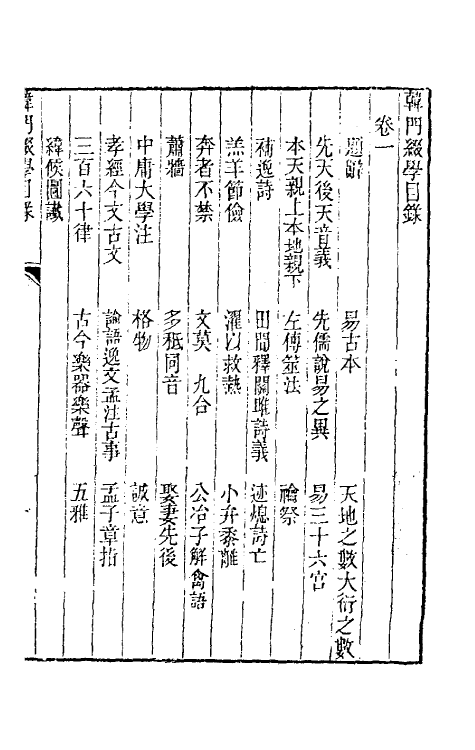 韓門綴學目錄
卷一
題辭　易古本　天地之數大衍之數
先天後天音義　先儒說易之異　易三十六宮
本天親上本地親下　左傳筮法　禬祭
補逸詩　田間釋關雎詩義　迹熄詩亡
羔羊節儉　濯以救熱　小弁黍離
奔者不禁　文莫　九合　公冶子解禽語
蕭牆　多秪同音　娶妻先後
中庸大學注　格物　誠意
孝經今文古文　論語逸文孟注古事　孟子章指
三百六十律　古今樂器樂聲　五雅
緯候圖讖
韓門綴學目錄